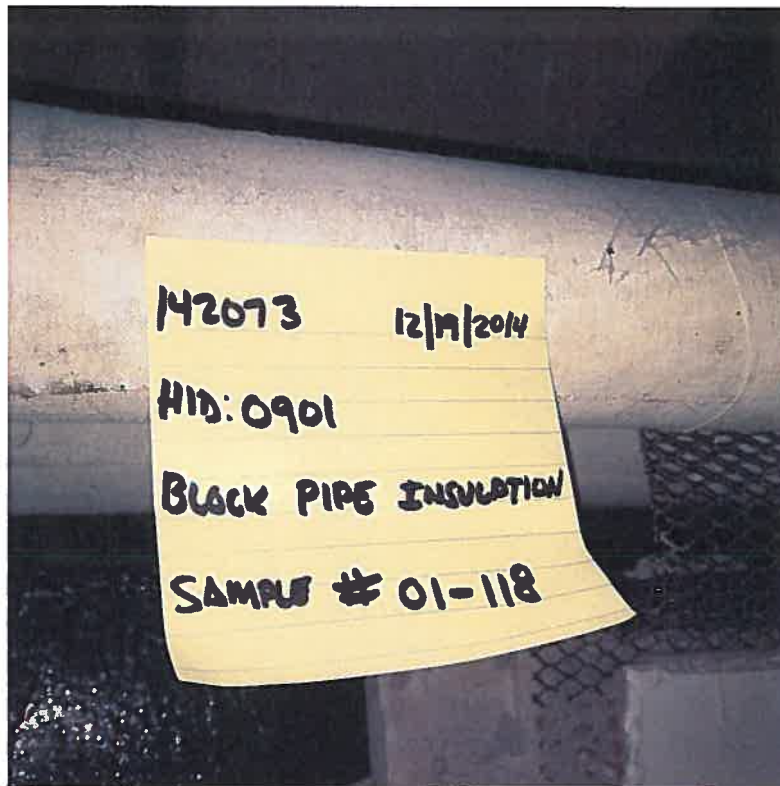 142073 12/19/2014
HID: 0901
BLOCK PIPE INSULATION
SAMPLE # 01-118